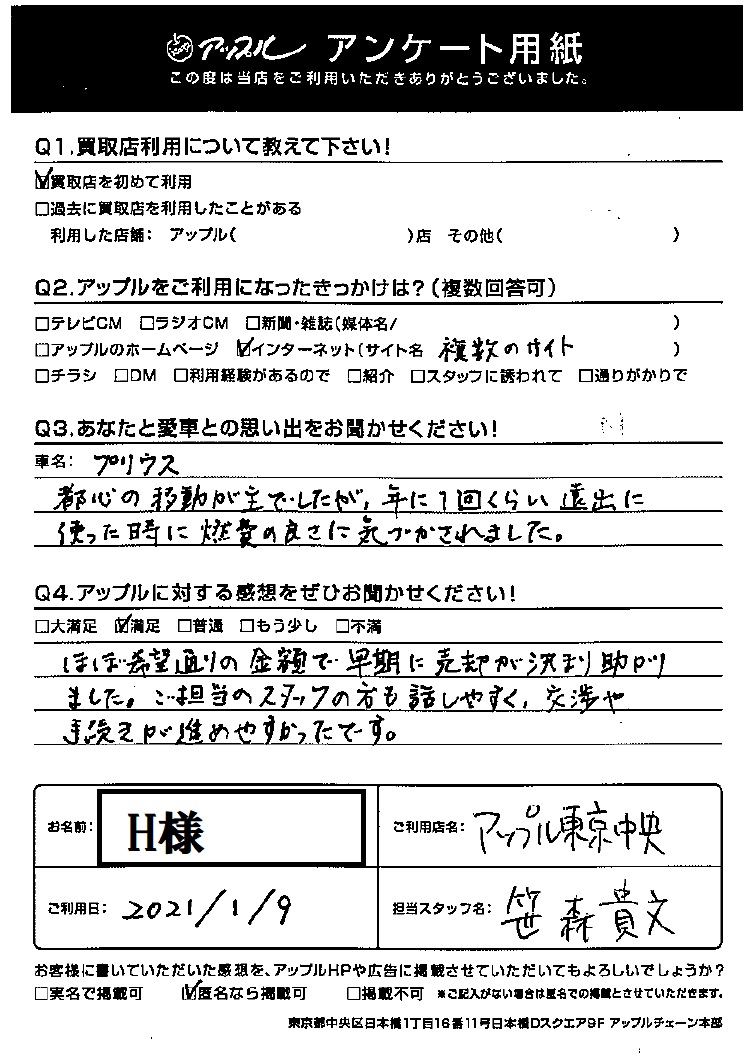 アップル アンケート用紙
この度は当店をご利用いただきありがとうございました。
Q1.買取店利用について教えて下さい!
☑買取店を初めて利用
□過去に買取店を利用したことがある
利用した店舗: アップル( )店 その他( )
Q2.アップルをご利用になったきっかけは?(複数回答可)
□テレビCM □ラジオCM □新聞・雑誌(媒体名/ )
□アップルのホームページ ☑インターネット(サイト名 複数のサイト )
□チラシ □DM □利用経験があるので □紹介 □スタッフに誘われて □通りがかりで
Q3.あなたと愛車との思い出をお聞かせください!
車名: プリウス
都心の移動が主でしたが、年に1回くらい遠出に
使った時に燃費の良さに気づかされました。
Q4.アップルに対する感想をぜひお聞かせください!
□大満足 ☑満足 □普通 □もう少し □不満
ほぼ希望通りの金額で早期に売却が決まり助かり
ました。ご担当のスタッフの方も話しやすく、交渉や
手続きが進めやすかったです。
お名前: H様 ご利用店名: アップル東京中央
ご利用日: 2021/1/9 担当スタッフ名: 笹森貴文
お客様に書いていただいた感想を、アップルHPや広告に掲載させていただいてもよろしいでしょうか?
□実名で掲載可 ☑匿名なら掲載可 □掲載不可 *ご記入がない場合は匿名での掲載とさせていただきます。
東京都中央区日本橋1丁目16番11号日本橋Dスクエア9F アップルチェーン本部